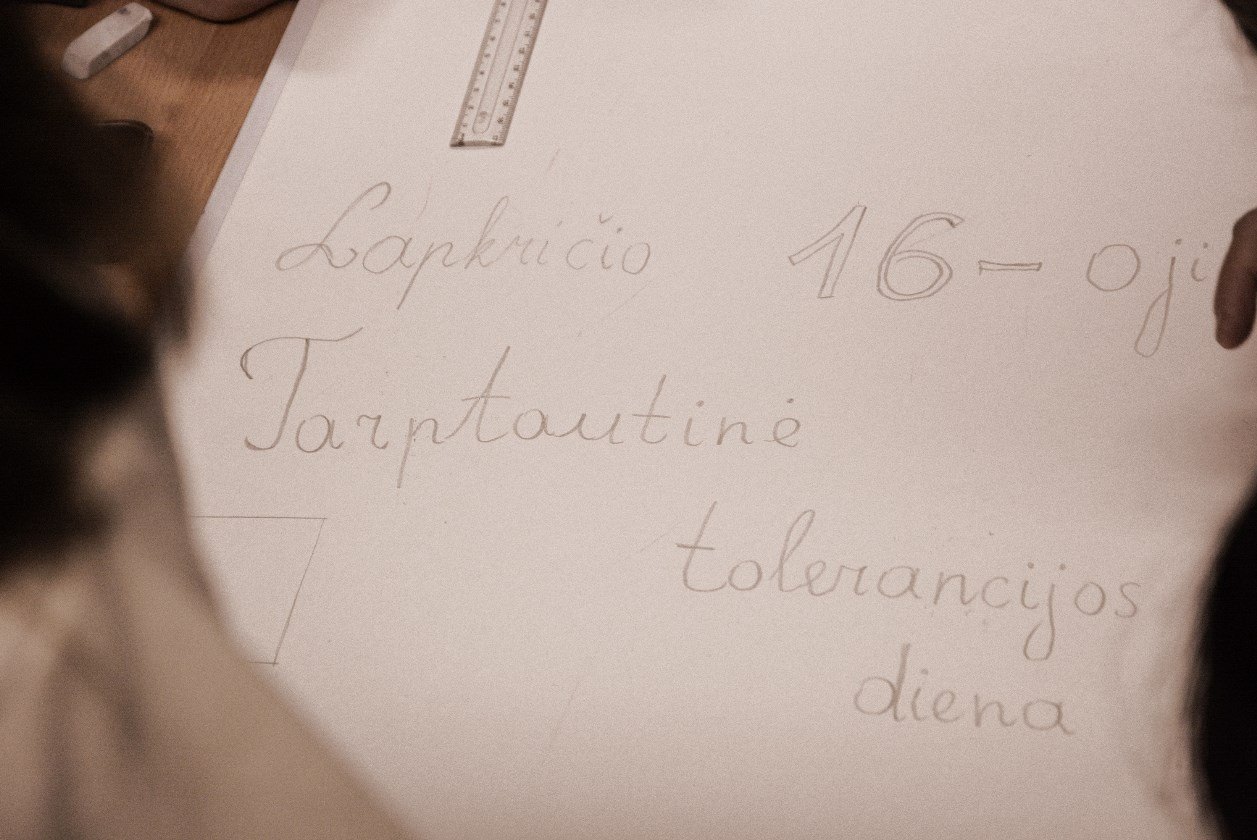 Lapkričio 16-oji
Tarptautinė
tolerancijos
diena